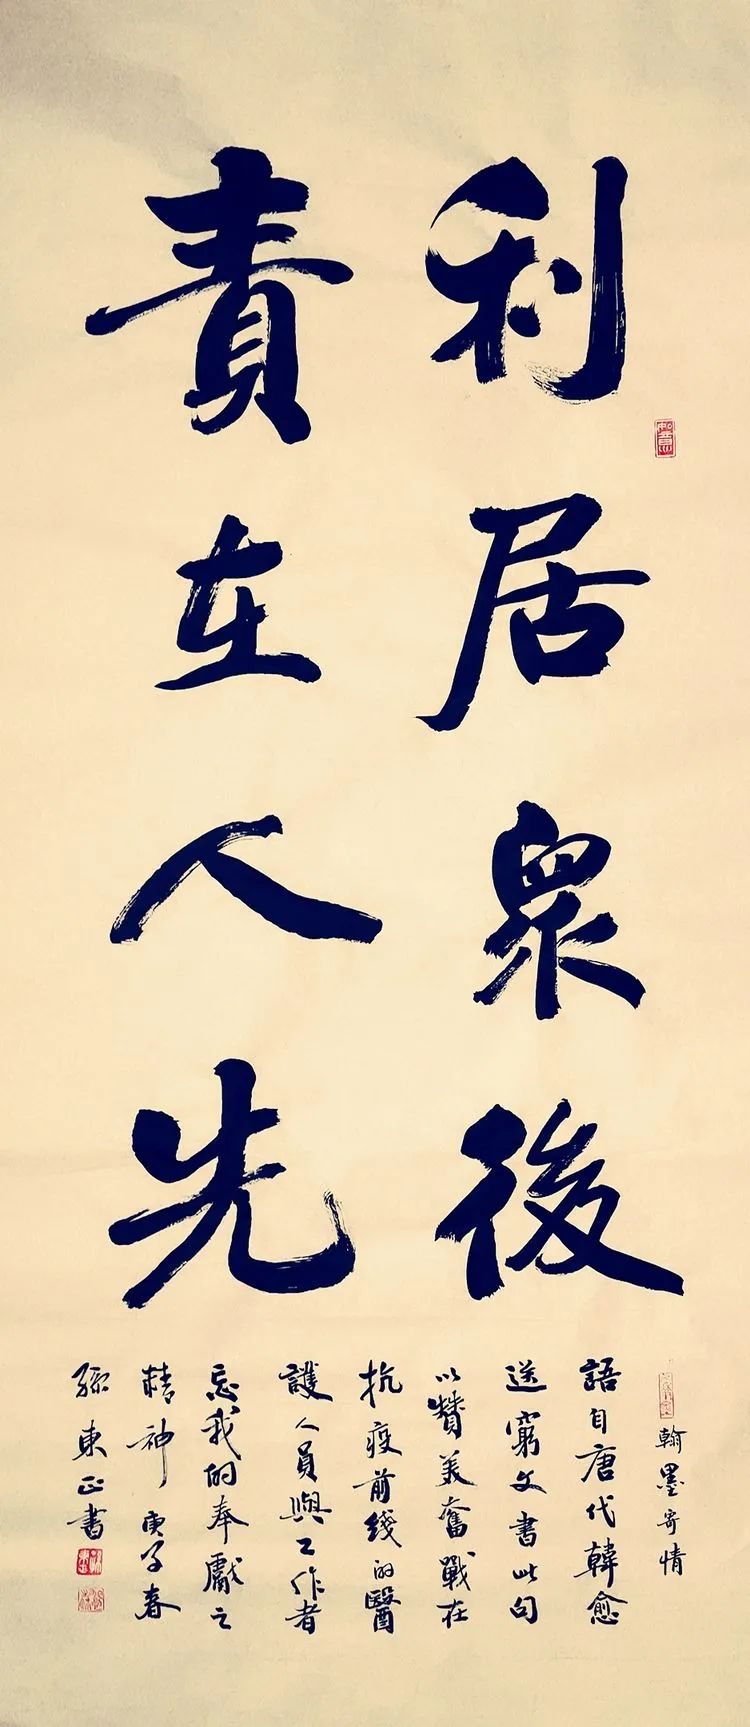 利居衆後
責在人先
翰墨寄情
語自唐代韓愈
送窮文書此句
以贊美奮戰在
抗疫前线的醫
護人員與工作者
忘我的奉獻之
精神 庚子春
孫東正書